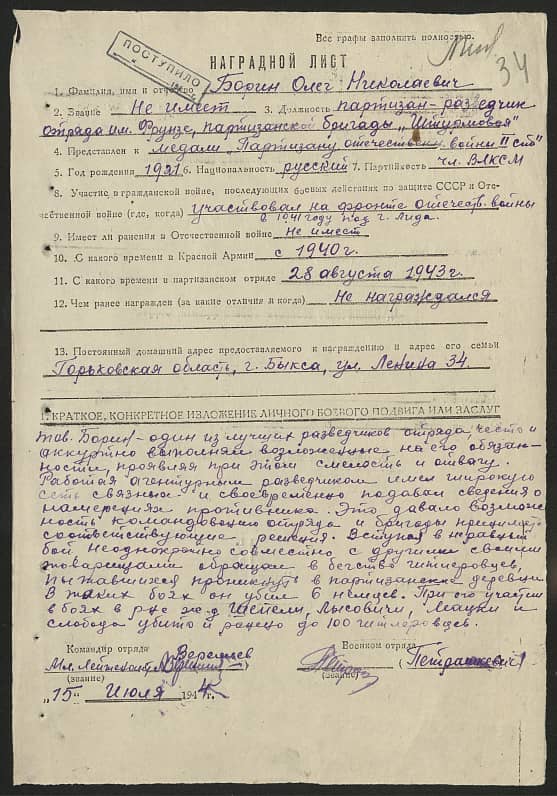 Все графы заполнять полностью.
34
ПОСТУПИЛО
НАГРАДНОЙ ЛИСТ
1. Фамилия, имя и отчество Борин Олег Николаевич
2. Звание Не имеет 3. Должность партизан-разведчик
отряда им. Фрунзе, партизанской бригады „Штурмовая"
4. Представлен к медали „Партизану отечествен. войны" II ст.
5. Год рождения 1921 6. Национальность русский 7. Партийность чл. ВЛКСМ
8. Участие в гражданской войне, последующих боевых действиях по защите СССР и Оте-
чественной войне (где, когда) участвовал на фронте отечеств. войны
с 1941 году под г. Лида.
9. Имеет ли ранения в Отечественной войне Не имеет
10. С какого времени в Красной Армии с 1940 г.
11. С какого времени в партизанском отряде 28 августа 1943 г.
12. Чем ранее награжден (за какие отличия и когда) Не награждался
13. Постоянный домашний адрес предоставляемого к награждению и адрес его семьи
Горьковская область, г. Выкса, ул. Ленина 34.
I. КРАТКОЕ, КОНКРЕТНОЕ ИЗЛОЖЕНИЕ ЛИЧНОГО БОЕВОГО ПОДВИГА ИЛИ ЗАСЛУГ
Тов. Борин – один из лучших разведчиков отряда, честно и
аккуратно выполнял возложенные на его обязан-
ности, проявляя при этом смелость и отвагу.
Работая агентурным разведчиком имел широкую
сеть связных и своевременно подавал сведения о
намерениях противника. Это давало возмож-
ность командованию отряда и бригады принимать
соответствующие решения. Вступая в неравный
бой неоднократно совместно с другими своими
товарищами обращал в бегство гитлеровцев,
пытавшихся проникнуть в партизанские деревни.
В таких боях он убил 6 немцев. При его участии
в боях в р-не ж.д Шепели, Лысовичи, Мацки и
слобода убито и ранено до 100 гитлеровцев.
Командир отряда
Военком отряда
Мл. Лейтенант
(звание)
(звание)
„15" Июля 1944 г.